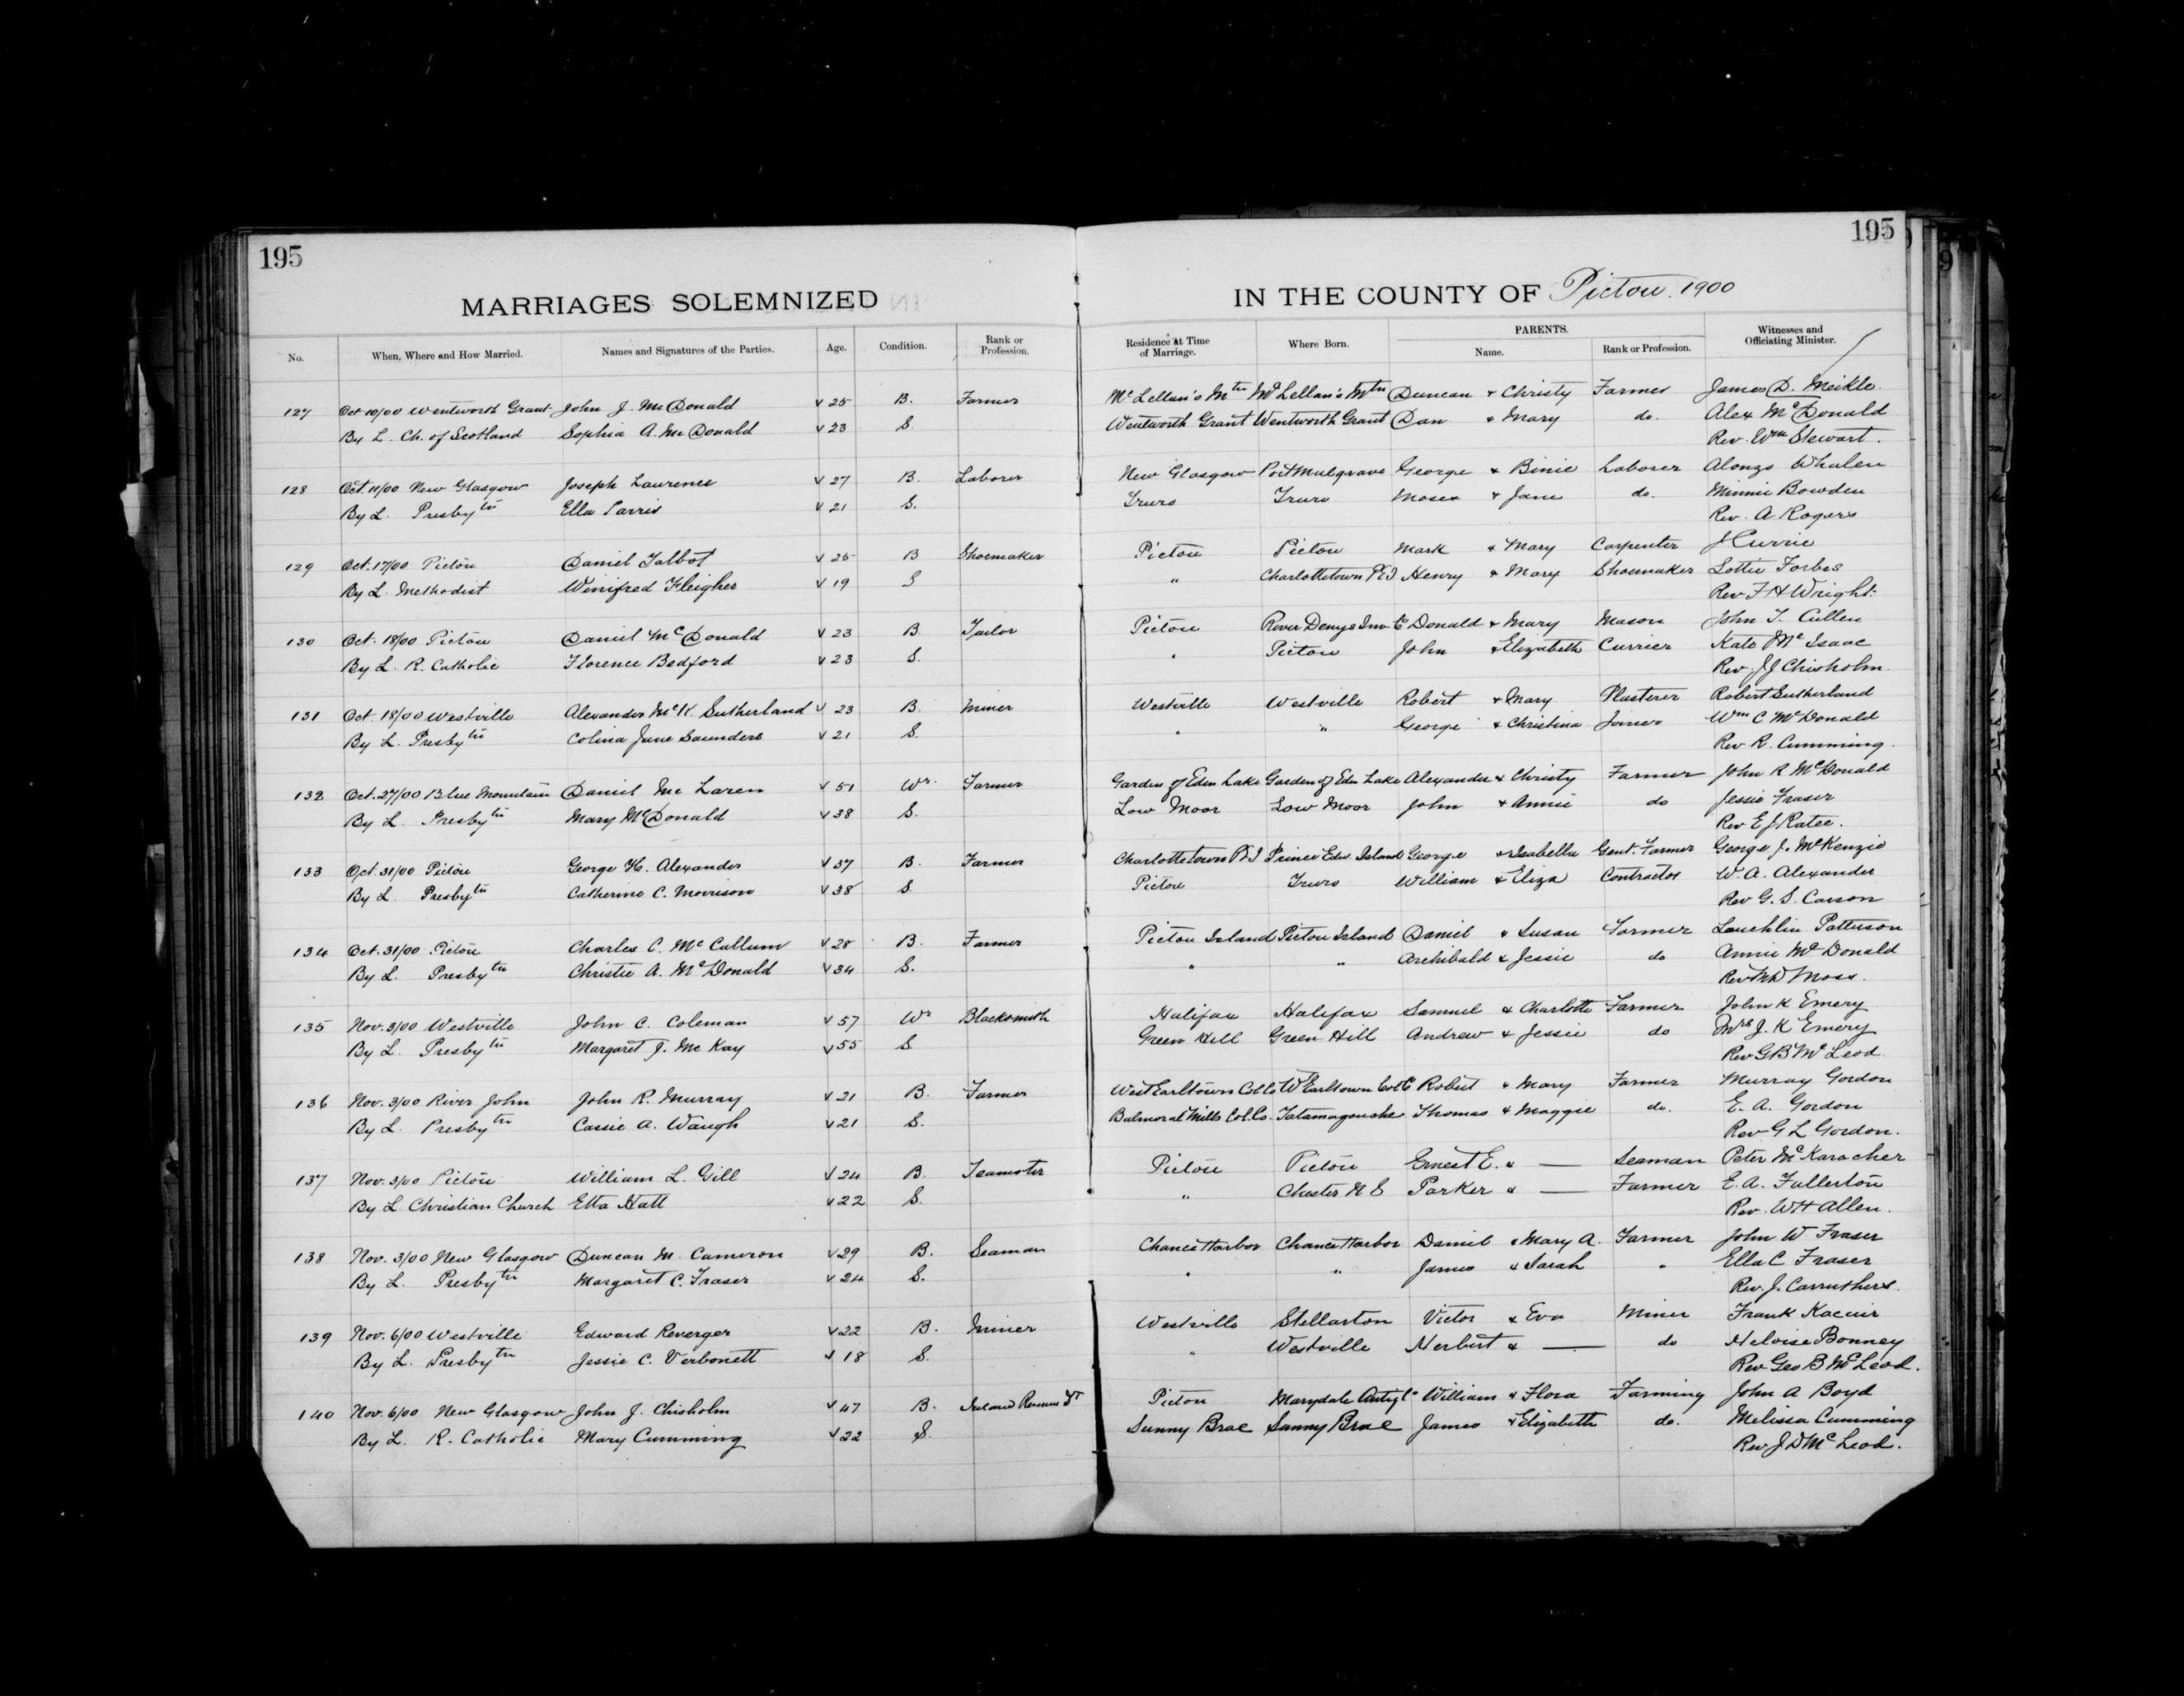 195
195
MARRIAGES SOLEMNIZED
IN THE COUNTY OF Pictou. 1900
No. When, Where and How Married. Names and Signatures of the Parties. Age. Condition. Rank or Profession. Residence At Time of Marriage. Where Born. PARENTS. Name. Rank or Profession. Witnesses and Officiating Minister.
127 Oct 10/00 Wentworth Grant John J. McDonald v 25 B. Farmer McLellan's Mtn McLellan's Mtn Duncan & Christy Farmer James D. Meikle
By L. Ch. of Scotland Sophia A. McDonald v 23 S. Wentworth Grant Wentworth Grant Dan & Mary do. Alex McDonald
Rev. Wm Stewart.
128 Oct. 11/00 New Glasgow Joseph Laurence v 27 B. Laborer New Glasgow Port Mulgrave George & Binie Laborer Alonzo Whalen
By L. Presbytn Ella Parris v 21 S. Truro Truro Moses & Jane do. Minnie Bowden
Rev. A Rogers
129 Oct. 17/00 Pictou Daniel Talbot v 25 B Shoemaker Pictou Pictou Mark & Mary Carpenter J Currie
By L. Methodist Winifred Fleigher v 19 S " Charlottetown PEI Henry & Mary Shoemaker Lottie Forbes
Rev F H Wright.
130 Oct. 18/00 Pictou Daniel McDonald v 23 B. Tailor Pictou River Denys Inv Co Donald & Mary Mason John T. Cullen
By L. R. Catholic Florence Bedford v 23 S. " Pictou John & Elizabeth Currier Kate McIsaac
Rev. J J Chisholm.
131 Oct. 18/00 Westville Alexander McK. Sutherland v 23 B. Miner Westville Westville Robert & Mary Plasterer Robert Sutherland
By L. Presbytn Colina Jane Saunders v 21 S. " " George & Christina Joiner Wm C McDonald
Rev R. Cumming.
132 Oct. 27/00 Blue Mountain Daniel McLaren v 51 Wr. Farmer Garden of Eden Lake Garden of Eden Lake Alexander & Christy Farmer John R McDonald
By L. Presbytn Mary McDonald v 38 S. Low Moor Low Moor John & Annie do Jessie Fraser
Rev E J Ratee.
133 Oct. 31/00 Pictou George H. Alexander v 37 B. Farmer Charlottetown PEI Prince Edw. Island George & Isabella Gent. Farmer George J. McKenzie
By L. Presbytn Catherine C. Morrison v 38 S. Pictou Truro William & Eliza Contractor W. A. Alexander
Rev G. S. Carson
134 Oct. 31/00 Pictou Charles C. McCallum v 28 B. Farmer Pictou Island Pictou Island Daniel & Susan Farmer Lauchlin Patterson
By L. Presbytn Christie A. McDonald v 34 S. " " Archibald & Jessie do Annie McDonald
Rev Moss.
135 Nov. 3/00 Westville John C. Coleman v 57 Wr Blacksmith Halifax Halifax Samuel & Charlotte Farmer John K Emery
By L. Presbytn Margaret J. McKay v 55 S Green Hill Green Hill Andrew & Jessie do Mrs J. K Emery
Rev G B McLeod.
136 Nov. 3/00 River John John R. Murray v 21 B. Farmer West Earltown Col Co W Earltown Col C Robert & Mary Farmer Murray Gordon
By L. Presbytn Cassie A. Waugh v 21 S. Balmoral Mills Col. Co. Tatamagouche Thomas & Maggie do. E. A. Gordon
Rev G L Gordon.
137 Nov. 3/00 Pictou William L. Gill v 24 B. Teamster Pictou Pictou Ernest E. & — Seaman Peter McKaracher
By L Christian Church Etta Hatt v 22 S. " Chester N S Parker & — Farmer E. A. Fullerton
Rev. W H Allen.
138 Nov. 3/00 New Glasgow Duncan M. Cameron v 29 B. Seaman Chance Harbor Chance Harbor Daniel & Mary A. Farmer John W Fraser
By L. Presbytn Margaret C. Fraser v 24 S. " " James & Sarah " Ella C Fraser
Rev. J. Carruthers.
139 Nov. 6/00 Westville Edward Reverger v 22 B. Miner Westville Stellarton Victor & Eva Miner Frank Kacuir
By L. Presbytn Jessie C. Verbonett v 18 S. " Westville Herbert & — do Heloise Bonney
Rev Geo B McLeod.
140 Nov. 6/00 New Glasgow John J. Chisholm v 47 B. Inland Revenue Pictou Marydale Antig Co William & Flora Farming John A Boyd
By L. R. Catholic Mary Cumming v 22 S. Sunny Brae Sunny Brae James & Elizabeth do. Melissa Cumming
Rev J D McLeod.